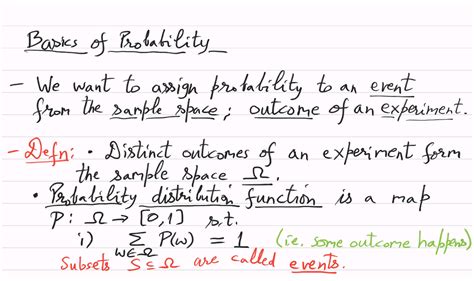 Basics of Probability
- We want to assign probability to an event
from the sample space; outcome of an experiment.
- Defn: • Distinct outcomes of an experiment form
the sample space Ω.
• Probability distribution function is a map
P: Ω → [0,1] s.t.
i) Σ P(ω) = 1 (i.e. some outcome happens)
ω∈Ω
Subsets S ⊆ Ω are called events.